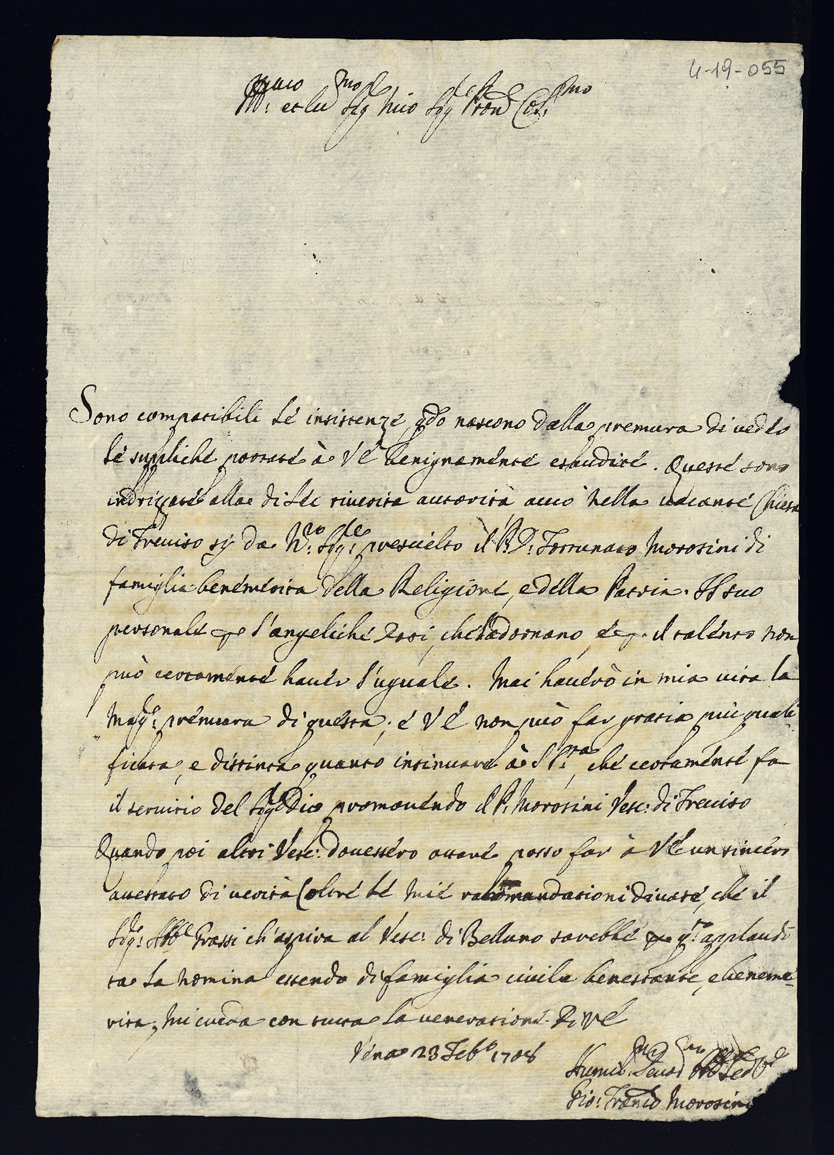 4-19-055
Sig. mio Sig. Pron. Col.mo
Sono compatibili le insistenze, qdo nascono dalla premura di veder
le supliche portate à V E benignamente esaudite. Queste sono
indrizzate alla di Lei riverita autorità acciò nella vacante Chiesa
di Treviso sij da N.ro Sig.re prescielto il P. Fortunato Morosini di
famiglia benemerita della Religione, e della Patria. Il suo
personale p l'angeliche doti, che l'adornano, e p il talento non
può certamente haver l'uguale. Mai haverò in mia vita la
mag.r premura di questa; e V E non può far gratia più quali
ficata, e distinta quanto insinuare à S. S.tà, che certamente fa
il servitio del Sig. Dio promovendo il P. Morosini Vesc: di Treviso
Quando poi altri Vesc: dovessero posso far à V E un sincero
attestato di verità (oltre le mie racomandationi divote, che il
Sig. Abbe Grassi ch'aspira al Vesc: di Belluno sarebbe p q.to applaudi
ta la nomina essendo di famiglia civile benestante, e beneme-
rita; mi creda con tutta la veneratione. Di V E
Vena 23 Feb.o 1708
Gio: Franco Morosini